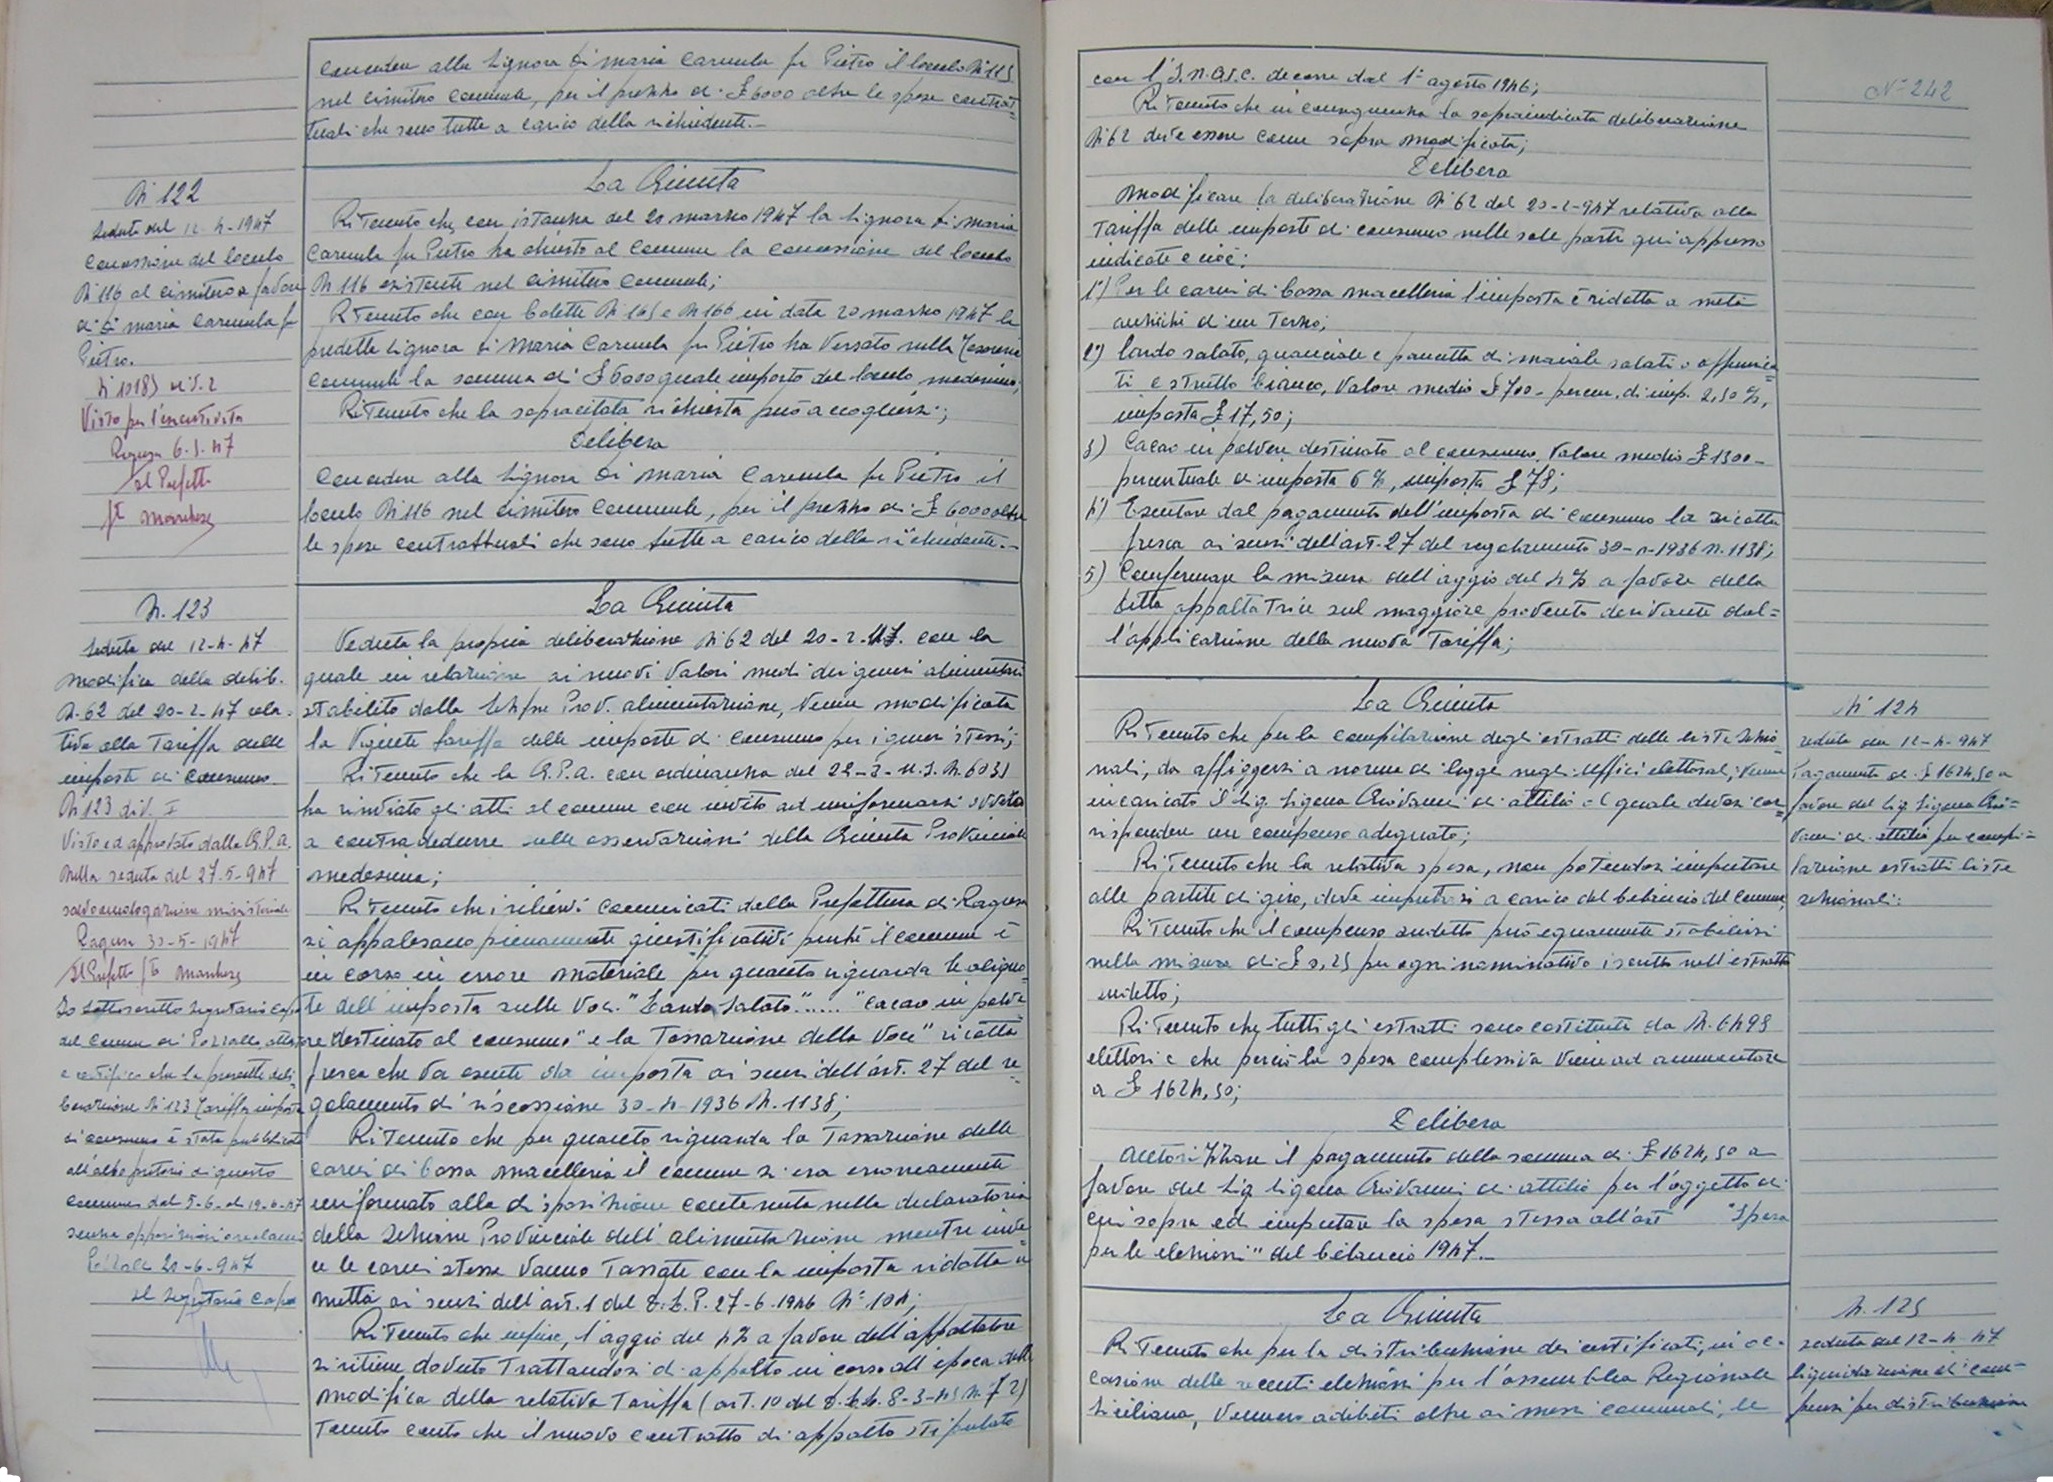 concedere alla Signora Di Maria Carmela fu Pietro il loculo N 115
nel cimitero comunale, per il prezzo di £ 6000 oltre le spese contrat=
tuali che sono tutte a carico della richiedente.-
N 122
Seduta del 12-4-1947
Concessione del loculo
N 116 al cimitero a favore
di Di Maria Carmela fu
Pietro.
N 10183 div. 2
Visto per l'esecutività
Ragusa 6-5-47
Il Prefetto
La Giunta
Ritenuto che con istanza del 20 marzo 1947 la Signora Di Maria
Carmela fu Pietro ha chiesto al Comune la concessione del loculo
N 116 esistente nel cimitero comunale;
Ritenuto che con bolette N 165 e N 166 in data 20 marzo 1947 la
predetta Signora Di Maria Carmela fu Pietro ha versato nella Tesoreria
Comunale la somma di £ 6000 quale importo del loculo medesimo;
Ritenuto che la sopracitata richiesta può accogliersi;
Delibera
Concedere alla Signora Di Maria Carmela fu Pietro il
loculo N 116 nel cimitero comunale, per il prezzo di £ 6000 oltre
le spese contrattuali che sono tutte a carico della richiedente.-
N. 123
Seduta del 12-4-47
Modifica della delib.
N. 62 del 20-2-47 rela-
tiva alla Tariffa delle
imposte di consumo
N 123 div. I
Visto ed approvato dalla G.P.A.
nella seduta del 27-5-947
salvo omologazione ministeriale
Ragusa 30-5-1947
Il Prefetto
Io sottoscritto Segretario Capo
del Comune di Pozzallo, attesto
e certifico che la presente deli-
berazione N 123 Tariffa imposte
di consumo è stata pubblicata
all'albo pretorio di questo
Comune dal 5-6 al 19-6-47
senza opposizioni o reclami
Pozzallo 20-6-947
Il Segretario Capo
La Giunta
Veduta la propria deliberazione N 62 del 20-2-47. con la
quale in relazione ai nuovi valori medi dei generi alimentari
stabilito dalla Sezione Prov. alimentazione, venne modificata
la vigente tariffa delle imposte di consumo per i generi stessi;
Ritenuto che la G.P.A. con ordinanza del 22-3-u.s. N. 6031
ha rinviato gli atti al comune con invito ad uniformarsi ovvero
a contradedurre sulle osservazioni della Giunta Provinciale
medesima;
Ritenuto che i rilievi comunicati della Prefettura di Ragusa
si appalesano pienamente giustificativi perchè il comune è
in corso in errore materiale per quanto riguarda le aliquo=
te dell'imposta sulle voci "Lardo salato"..... "Cacao in polve
re destinato al consumo" e la Tassazione della voce "ricotta
fresca che va esente da imposta ai sensi dell'art. 27 del re=
golamento di riscossione 30-4-1936 N. 1138;
Ritenuto che per quanto riguarda la Tassazione delle
carni di bassa macelleria il comune si era erroneamente
uniformato alla disposizione contenuta nella declaratoria
della Sezione Provinciale dell'alimentazione mentre inve=
ce le carni stesse vanno Tassate con la imposta ridotta a
metta ai sensi dell'art. 1 del D.L.P. 27-6-1946 N° 104;
Ritenuto che infine, l'aggio del 4% a favore dell'appaltatore
si ritiene dovuto Trattandosi di appalto in corso all'epoca della
modifica della relativa Tariffa (art. 10 del D.L.L. 8-3-45 N 72)
Tenuto conto che il nuovo contratto di appalto stipulato
N° 242
con l'I.N.G.I.C. decorre dal 1° agosto 1946;
Ritenuto che in conseguenza la sopraindicata deliberazione
N 62 deve essere come sopra modificata;
Delibera
Modificare la deliberazione N 62 del 20-2-947 relativa alla
Tariffa delle imposte di consumo nelle sole parti qui appresso
indicate e cioè:
1°) Per le carni di bassa macelleria l'imposta è ridotta a metà
anzichè di un Terzo;
2°) Lardo salato, guanciale e pancetta di maiale salati o affumica=
ti e strutto bianco, valore medio £ 700 - percen. di imp. 2,50%,
imposta £ 17,50;
3) Cacao in polvere destinato al consumo. Valore medio £ 1300-
percentuale di imposta 6%, imposta £ 78;
4) Esentare dal pagamento dell'imposta di consumo la ricotta
fresca ai sensi dell'art. 27 del regolamento 30-4-1936 n. 1138;
5) Confermare la misura dell'aggio del 4% a favore della
Ditta appaltatrice sul maggiore provento derivante dal=
l'applicazione della nuova Tariffa;
La Giunta
Ritenuto che per la compilazione degli estratti delle liste sezio=
nali, da affiggersi a norma di legge negli Uffici elettorali, venne
incaricato il Sig. Sigona Giovanni di Attilio al quale devesi cor=
rispondere un compenso adeguato;
Ritenuto che la relativa spesa, non potendosi imputare
alle partite di giro, deve imputarsi a carico del bilancio del comune;
Ritenuto che il compenso anzidetto può equamente stabilirsi
nella misura di £ 0,25 per ogni nominativo iscritto nell'estratto
anzidetto;
Ritenuto che tutti gli estratti sono costituiti da N. 6498
elettori e che perciò la spesa complessiva viene ad ammontare
a £ 1624,50;
Delibera
Autorizzare il pagamento della somma di £ 1624,50 a
favore del Sig. Sigona Giovanni di Attilio per l'oggetto di
cui sopra ed imputare la spesa stessa all'art "Spesa
per le elezioni" del bilancio 1947.-
N 124
seduta del 12-4-947
Pagamento di £ 1624,50 a
favore del Sig. Sigona Gio=
vanni di Attilio per compi=
lazione estratti liste
sezionali:
La Giunta
Ritenuto che per la distribuzione dei certificati, in oc-
casione delle recenti elezioni per l'assemblea Regionale
Siciliana, vennero adibiti oltre ai messi comunali, le
N. 125
seduta del 12-4-47
liquidazione di com=
pensi per distribuzione